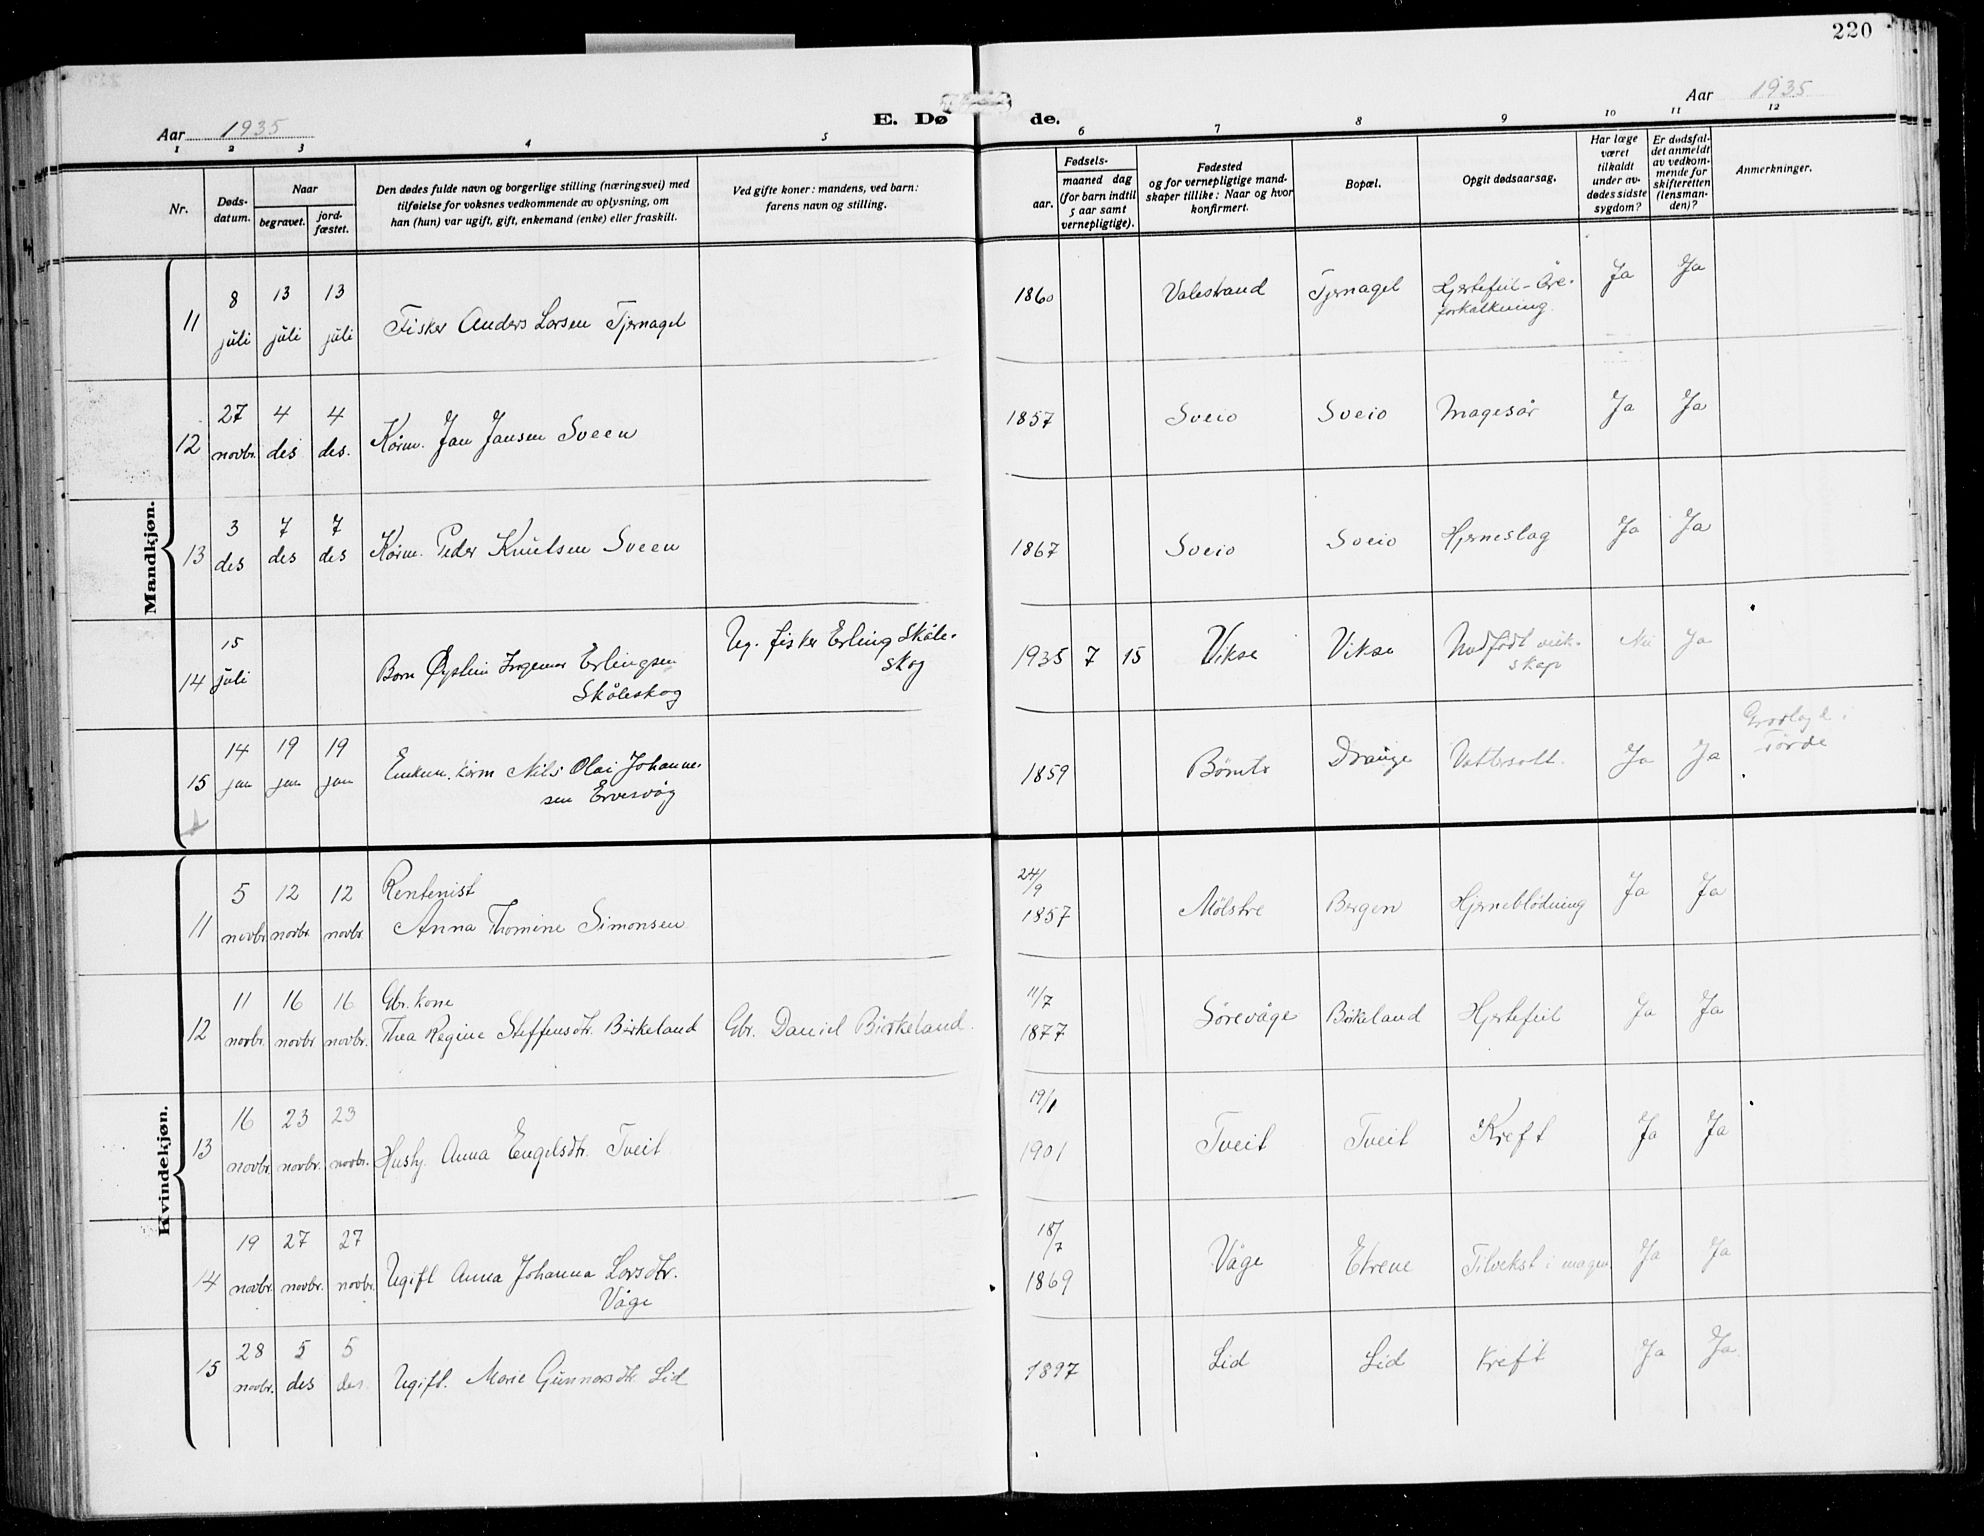 220
Aar 1935
E. Døde.
Aar 1935
1 2 3 4 5 6 7 8 9 10 11 12
Nr.
Døds-
datum.
Naar
begravet.
jord-
fæstet.
Den dødes fulde navn og borgerlige stilling (næringsvei) med
tilføielse for voksnes vedkommende av oplysning, om
han (hun) var ugift, gift, enkemand (enke) eller fraskilt.
Ved gifte koner: mandens, ved barn:
farens navn og stilling.
Fødsels-
aar.
maaned dag
(for barn indtil
5 aar samt
vernepligtige).
Fødested
og for vernepligtige mand-
skaper tillike: Naar og hvor
konfirmert.
Bopæl.
Opgit dødsaarsag.
Har læge
været
tilkaldt
under av-
dødes sidste
sygdom?
Er dødsfal-
det anmeldt
av vedkom-
mende for
skifteretten
(lensman-
den)?
Anmerkninger.
Mandkjøn.
11 8 juli 13 juli 13 juli Fisker Anders Larsen Tjernagel 1860 Valestrand Tjernagel Hjertefeil - Åre-
forkalkning. Ja Ja
12 27 novbr. 4 des 4 des. Kårm. Jan Jansen Sveen 1857 Sveio Sveio Magesår Ja Ja
13 3 des 7 des 7 des Kårm. Peder Knutsen Sveen 1867 Sveio Sveio Hjerneslag Ja Ja
14 15 juli Barn Øystein Ingemar Erlingsen
Skåleskog Ug. fisker Erling Skåle-
skog 1935 7 15 Vikse Vikse Medfødt veik-
skap Nei Ja
15 14 jan 19 jan 19 jan Enkem. kårm Nils Olai Johanne-
sen Ervesvåg 1859 Bømlo Drange Vattersott. Ja Ja Gravlagt i
Førde
Kvindekjøn.
11 5 novbr 12 novbr. 12 novbr. Rentenist
Anna Thomine Simonsen 24/9 1857 Mølstre Bergen Hjerneblødning Ja Ja
12 11 novbr. 16 novbr 16 novbr. Gbr. kone
Thea Regine Steffensdtr. Birkeland Gbr. Daniel Birkeland. 11/7 1877 Sørevåge Birkeland Hjertefeil Ja Ja
13 16 novbr. 23 novbr. 23 novbr. Hush. Anna Engelsdtr. Tveit 19/1 1901 Tveit Tveit Kreft Ja Ja
14 19 novbr. 27 novbr. 27 novbr. Ugift Anna Johanna Larsdtr.
Våge 18/7 1869 Våge Etrene Tilvekst i magen Ja Ja
15 28 novbr. 5 des 5 des. Ugift. Marie Gunnarsdtr. Lid 1897 Lid Lid Kreft Ja Ja